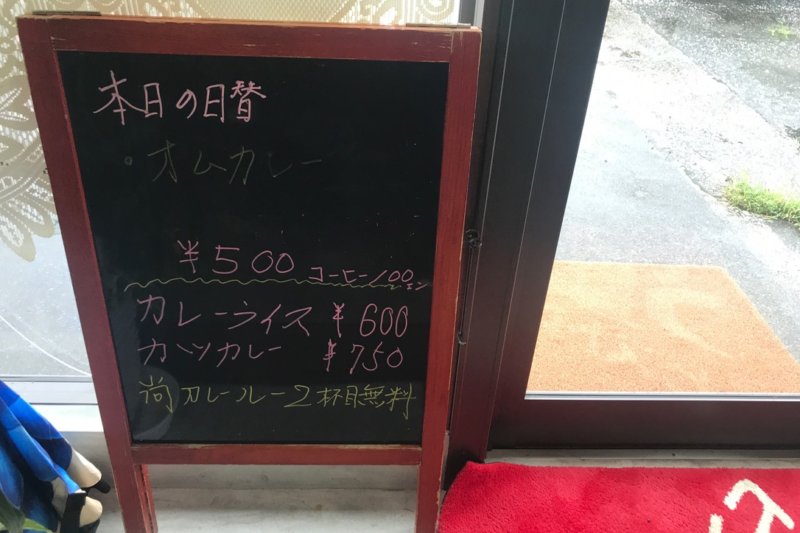 本日の日替
・オムカレー
¥500 コーヒー100エン
カレーライス ¥600
カツカレー ¥750
尚カレールー2杯目無料